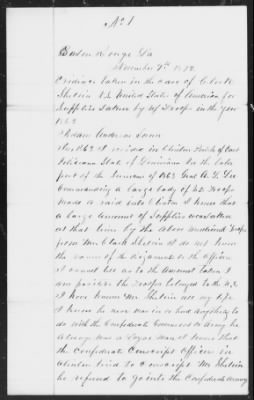 No 1
Baton Rouge La
November 7th 1872
Evidence taken in the case of Clark
vs United States of America for
Supplies taken by US Troops in the year
1863
Adam Anderson Sworn
In 1863 I resided in Clinton Parish of East
Feliciana State of Louisiana In the later
part of the summer of 1863 Genl A. L. Lee
Commanding a large body of US Troops
made a raid into Clinton I know that
a large amount of Supplies was taken
at that time by the above mentioned Troops
from Mr Clark I do not know
the names of the Regiments or the officers
I cannot tell as to the amount taken I
am positive the Troops belonged to the U.S.
I have known Mr all my life
I know he never was in or had anything to
do with the Confederate Government or Army he
always was a Loyal man I know that
the Confederate Conscript Officer in
Clinton tried to conscript Mr
he refused to go into the Confederate Army